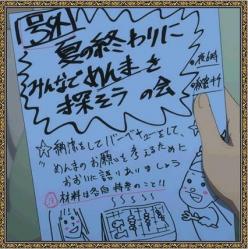 号外
夏の終わりに
みんなでめんまを
探そうの会
☆納涼をしてバーベキューをして、
めんまのお願いを考えるために
おおいに語りありましょう
材料は各自持参のこと!!